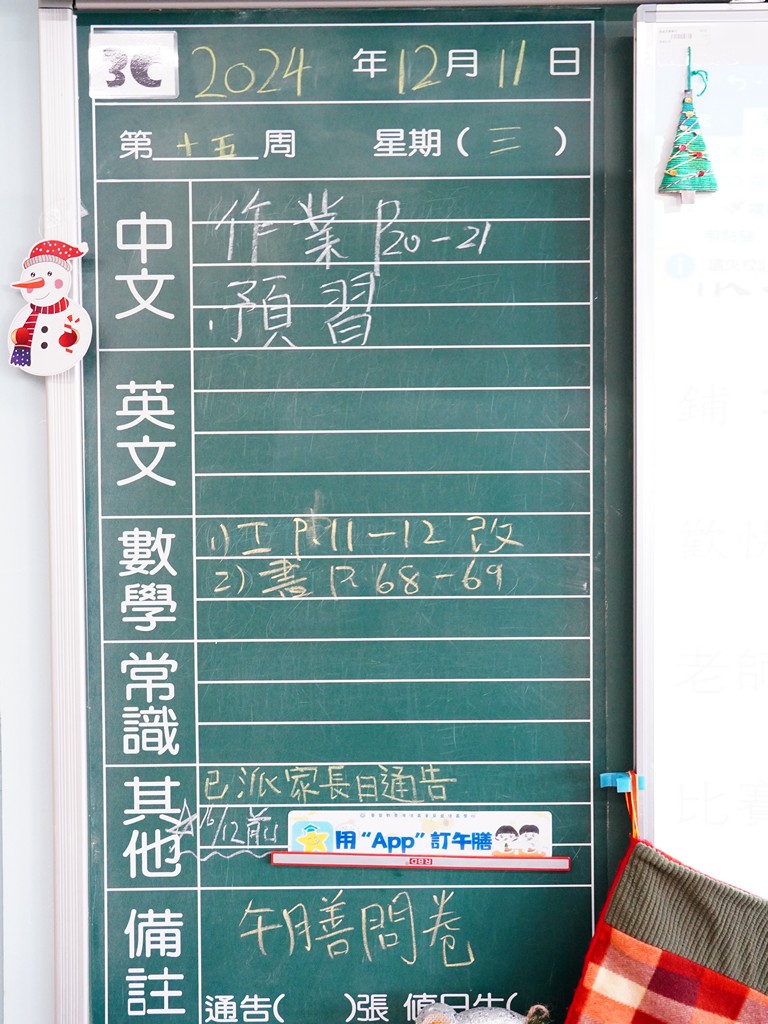 3C 2024 年 12 月 11 日
第 十五 周 星期 ( 三 )
中文
作業 P20-21
預習
英文
數學
1) 工 P.11-12 改
2) 書 P. 68-69
常識
其他
已派家長日通告
☆16/12前
用 “App” 訂午膳
RBD
備註
午膳問卷
通告( )張 值日生(